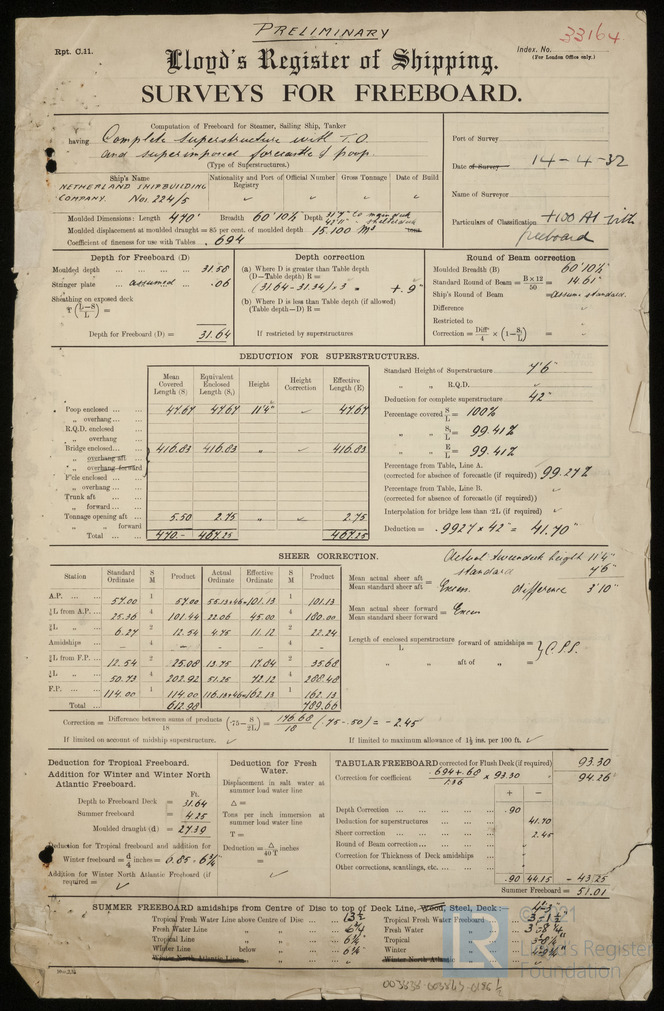 PRELIMINARY
33164
Rpt. C.11.
Index. No.
(For London Office only.)
Lloyd's Register of Shipping.
SURVEYS FOR FREEBOARD.
Computation of Freeboard for Steamer, Sailing Ship, Tanker
having Complete superstructure with T.O.
and superimposed forecastle & poop.
(Type of Superstructures.)
Port of Survey
Date of Survey 14-4-32
Name of Surveyor
Particulars of Classification +100 A1 with
freeboard
Ship's Name
Nationality and Port of Registry
Official Number
Gross Tonnage
Date of Build
NETHERLAND SHIPBUILDING
COMPANY. Nos. 224/5
Moulded Dimensions: Length 470' Breadth 60' 10½" Depth 31'7" to main deck
42'11" - shelterdeck
Moulded displacement at moulded draught = 85 per cent. of moulded depth 15.100 M³ tons
Coefficient of fineness for use with Tables .694
Depth for Freeboard (D)
Moulded depth ... 31.58
Stringer plate ... assumed . .06
Sheathing on exposed deck
T (L-S/L) =
Depth for Freeboard (D) = 31.64
Depth correction
(a) Where D is greater than Table depth
(D—Table depth) R =
(31.64-31.34) × 3 = + .9"
(b) Where D is less than Table depth (if allowed)
(Table depth—D) R =
If restricted by superstructures
Round of Beam correction
Moulded Breadth (B) 60' 10½"
Standard Round of Beam = B × 12 / 50 = 14.61"
Ship's Round of Beam = Assume standard.
Difference
Restricted to
Correction = Diff/4 × (1-S₁/L)
DEDUCTION FOR SUPERSTRUCTURES.
Mean Covered Length (S) Equivalent Enclosed Length (S₁) Height Height Correction Effective Length (E)
Poop enclosed ... 47.67 47.67 11'4" ✓ 47.67
„ overhang ...
R.Q.D. enclosed
„ overhang
Bridge enclosed... 416.83 416.83 „ 416.83
„ overhang aft
„ overhang forward
F'cle enclosed ...
„ overhang ...
Trunk aft ...
„ forward ...
Tonnage opening aft ... 5.50 2.75 „ ✓ 2.75
„ „ forward
Total ... 470.- 467.25 467.25
Standard Height of Superstructure 7'6"
„ „ R.Q.D. ✓
Deduction for complete superstructure 42"
Percentage covered S/L = 100%
„ „ S₁/L = 99.41%
„ „ E/L = 99.41%
Percentage from Table, Line A.
(corrected for absence of forecastle (if required)) 99.27%
Percentage from Table, Line B.
(corrected for absence of forecastle (if required)) ✓
Interpolation for bridge less than ·2L (if required) ✓
Deduction = .9927 × 42" = 41.70"
SHEER CORRECTION.
Station Standard Ordinate S M Product Actual Ordinate Effective Ordinate S M Product
A.P. ... 57.00 1 57.00 55.13+46=101.13 1 101.13
⅙L from A.P. ... 25.36 4 101.44 22.06 45.00 4 180.00
⅓L „ ... 6.27 2 12.54 4.75 11.12 2 22.24
Amidships ... - 4 - - 4 -
⅓L from F.P. ... 12.54 2 25.08 13.75 17.84 2 35.68
⅙L „ ... 50.73 4 202.92 51.25 72.12 4 288.48
F.P. ... 114.00 1 114.00 116.13+46=162.13 1 162.13
Total ... 612.98 789.66
Actual tweendeck height 11'4"
standard 7'6"
difference 3'10"
Mean actual sheer aft / Mean standard sheer aft = Excess.
Mean actual sheer forward / Mean standard sheer forward = Excess
Length of enclosed superstructure / L forward of amidships =
„ „ aft of „ = } C.S.S.
Correction = Difference between sums of products / 18 (·75-S/2L) = 176.68/18 (.75-.50) = -2.45
If limited on account of midship superstructure. ✓
If limited to maximum allowance of 1½ ins. per 100 ft. ✓
Deduction for Tropical Freeboard.
Addition for Winter and Winter North
Atlantic Freeboard.
Ft.
Depth to Freeboard Deck = 31.64
Summer freeboard = 4.25
Moulded draught (d) = 27.39
Deduction for Tropical freeboard and addition for
Winter freeboard = d/4 inches = 6.85 . 6¾
Addition for Winter North Atlantic Freeboard (if
required) = ✓
Deduction for Fresh
Water.
Displacement in salt water at
summer load water line
Δ =
Tons per inch immersion at
summer load water line
T =
Deduction = Δ/40 T inches
=
✓
TABULAR FREEBOARD corrected for Flush Deck (if required) 93.30
Correction for coefficient .694+.68 / 1.36 × 93.30 94.26
+ -
Depth Correction ... .90
Deduction for superstructures ... 41.70
Sheer correction ... 2.45
Round of Beam correction ...
Correction for Thickness of Deck amidships
Other corrections, scantlings, etc. ...
.90 44.15 - 43.25
Summer Freeboard = 51.01
SUMMER FREEBOARD amidships from Centre of Disc to top of Deck Line, Wood, Steel, Deck: 4'-3"
Tropical Fresh Water Line above Centre of Disc ... 13½
Fresh Water Line „ „ ... 6¾
Tropical Line „ „ ... 6¾
Winter Line below „ ... 6¾
Winter North Atlantic Line „ „
Tropical Fresh Water Freeboard ... 3'-1½"
Fresh Water „ ... 3'-8¼"
Tropical „ ... 3'-8¼"
Winter „ ... 4'-9¾"
Winter North Atlantic „
© 2021
LR
Lloyd's Register
Foundation